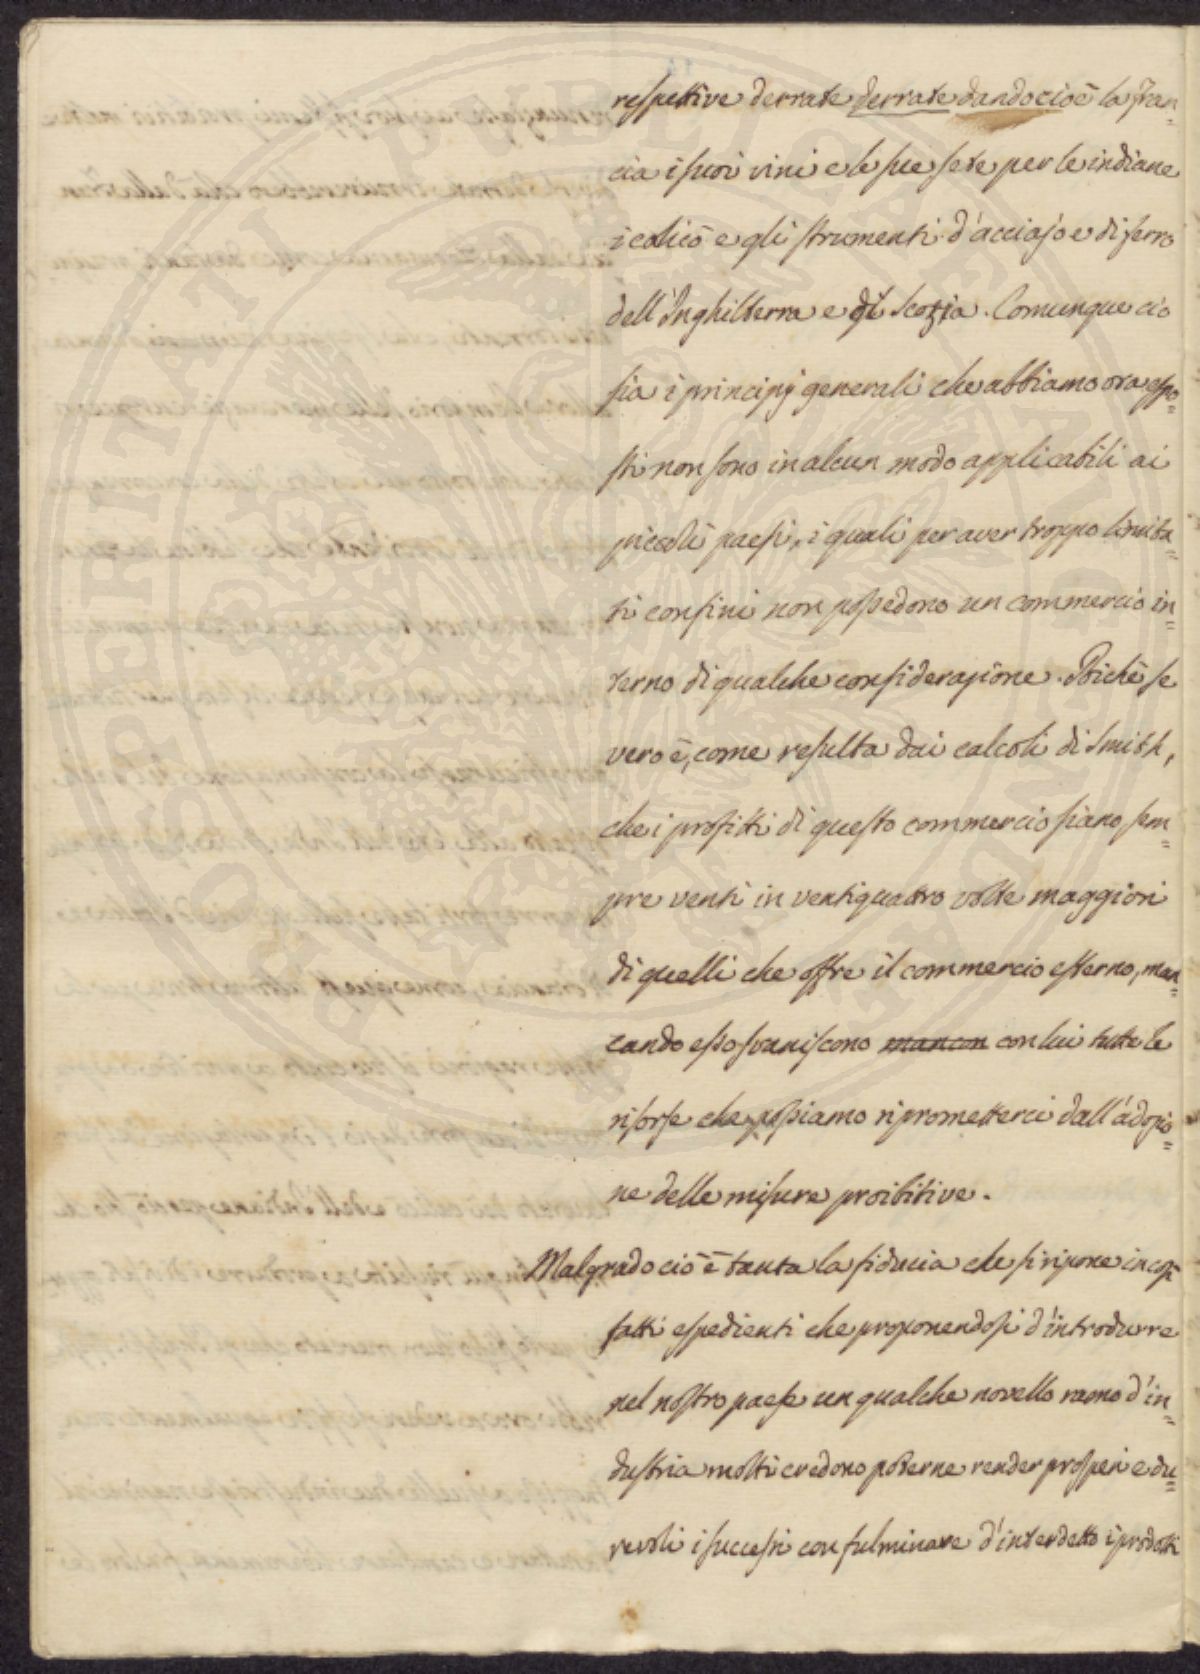 respettive derrate derrate dando cioè la Fran=
cia i suoi vini e le sue sete per le indiane
i calicò e gli strumenti d'acciajo e di ferro
dell'Inghilterra e di Scozia. Comunque cio
sia i principj generali che abbiamo ora espo=
sti non sono in alcun modo applicabili ai
piccoli paesi, i quali per aver troppo limita=
ti confini non possedono un commercio in=
terno di qualche considerazione. Poichè se
vero è, come resulta dai calcoli di Smith,
che i profitti di questo commercio siano sem=
pre venti in ventiquattro volte maggiori
di quelli che offre il commercio esterno, man=
cando esso svaniscono mancan con lui tutte le
risorse che possiamo riprometterci dall'adozio=
ne delle misure proibitive.
Malgrado ciò è tanta la fiducia che si ripone in così
fatti espedienti che proponendosi d'introdurre
nel nostro paese un qualche novello ramo d'in=
dustria molti credono poterne render prosperi e du=
revoli i successi con fulminare d'interdetto i prodotti
PROSPERITATI PUBLICAE AUGENDAE